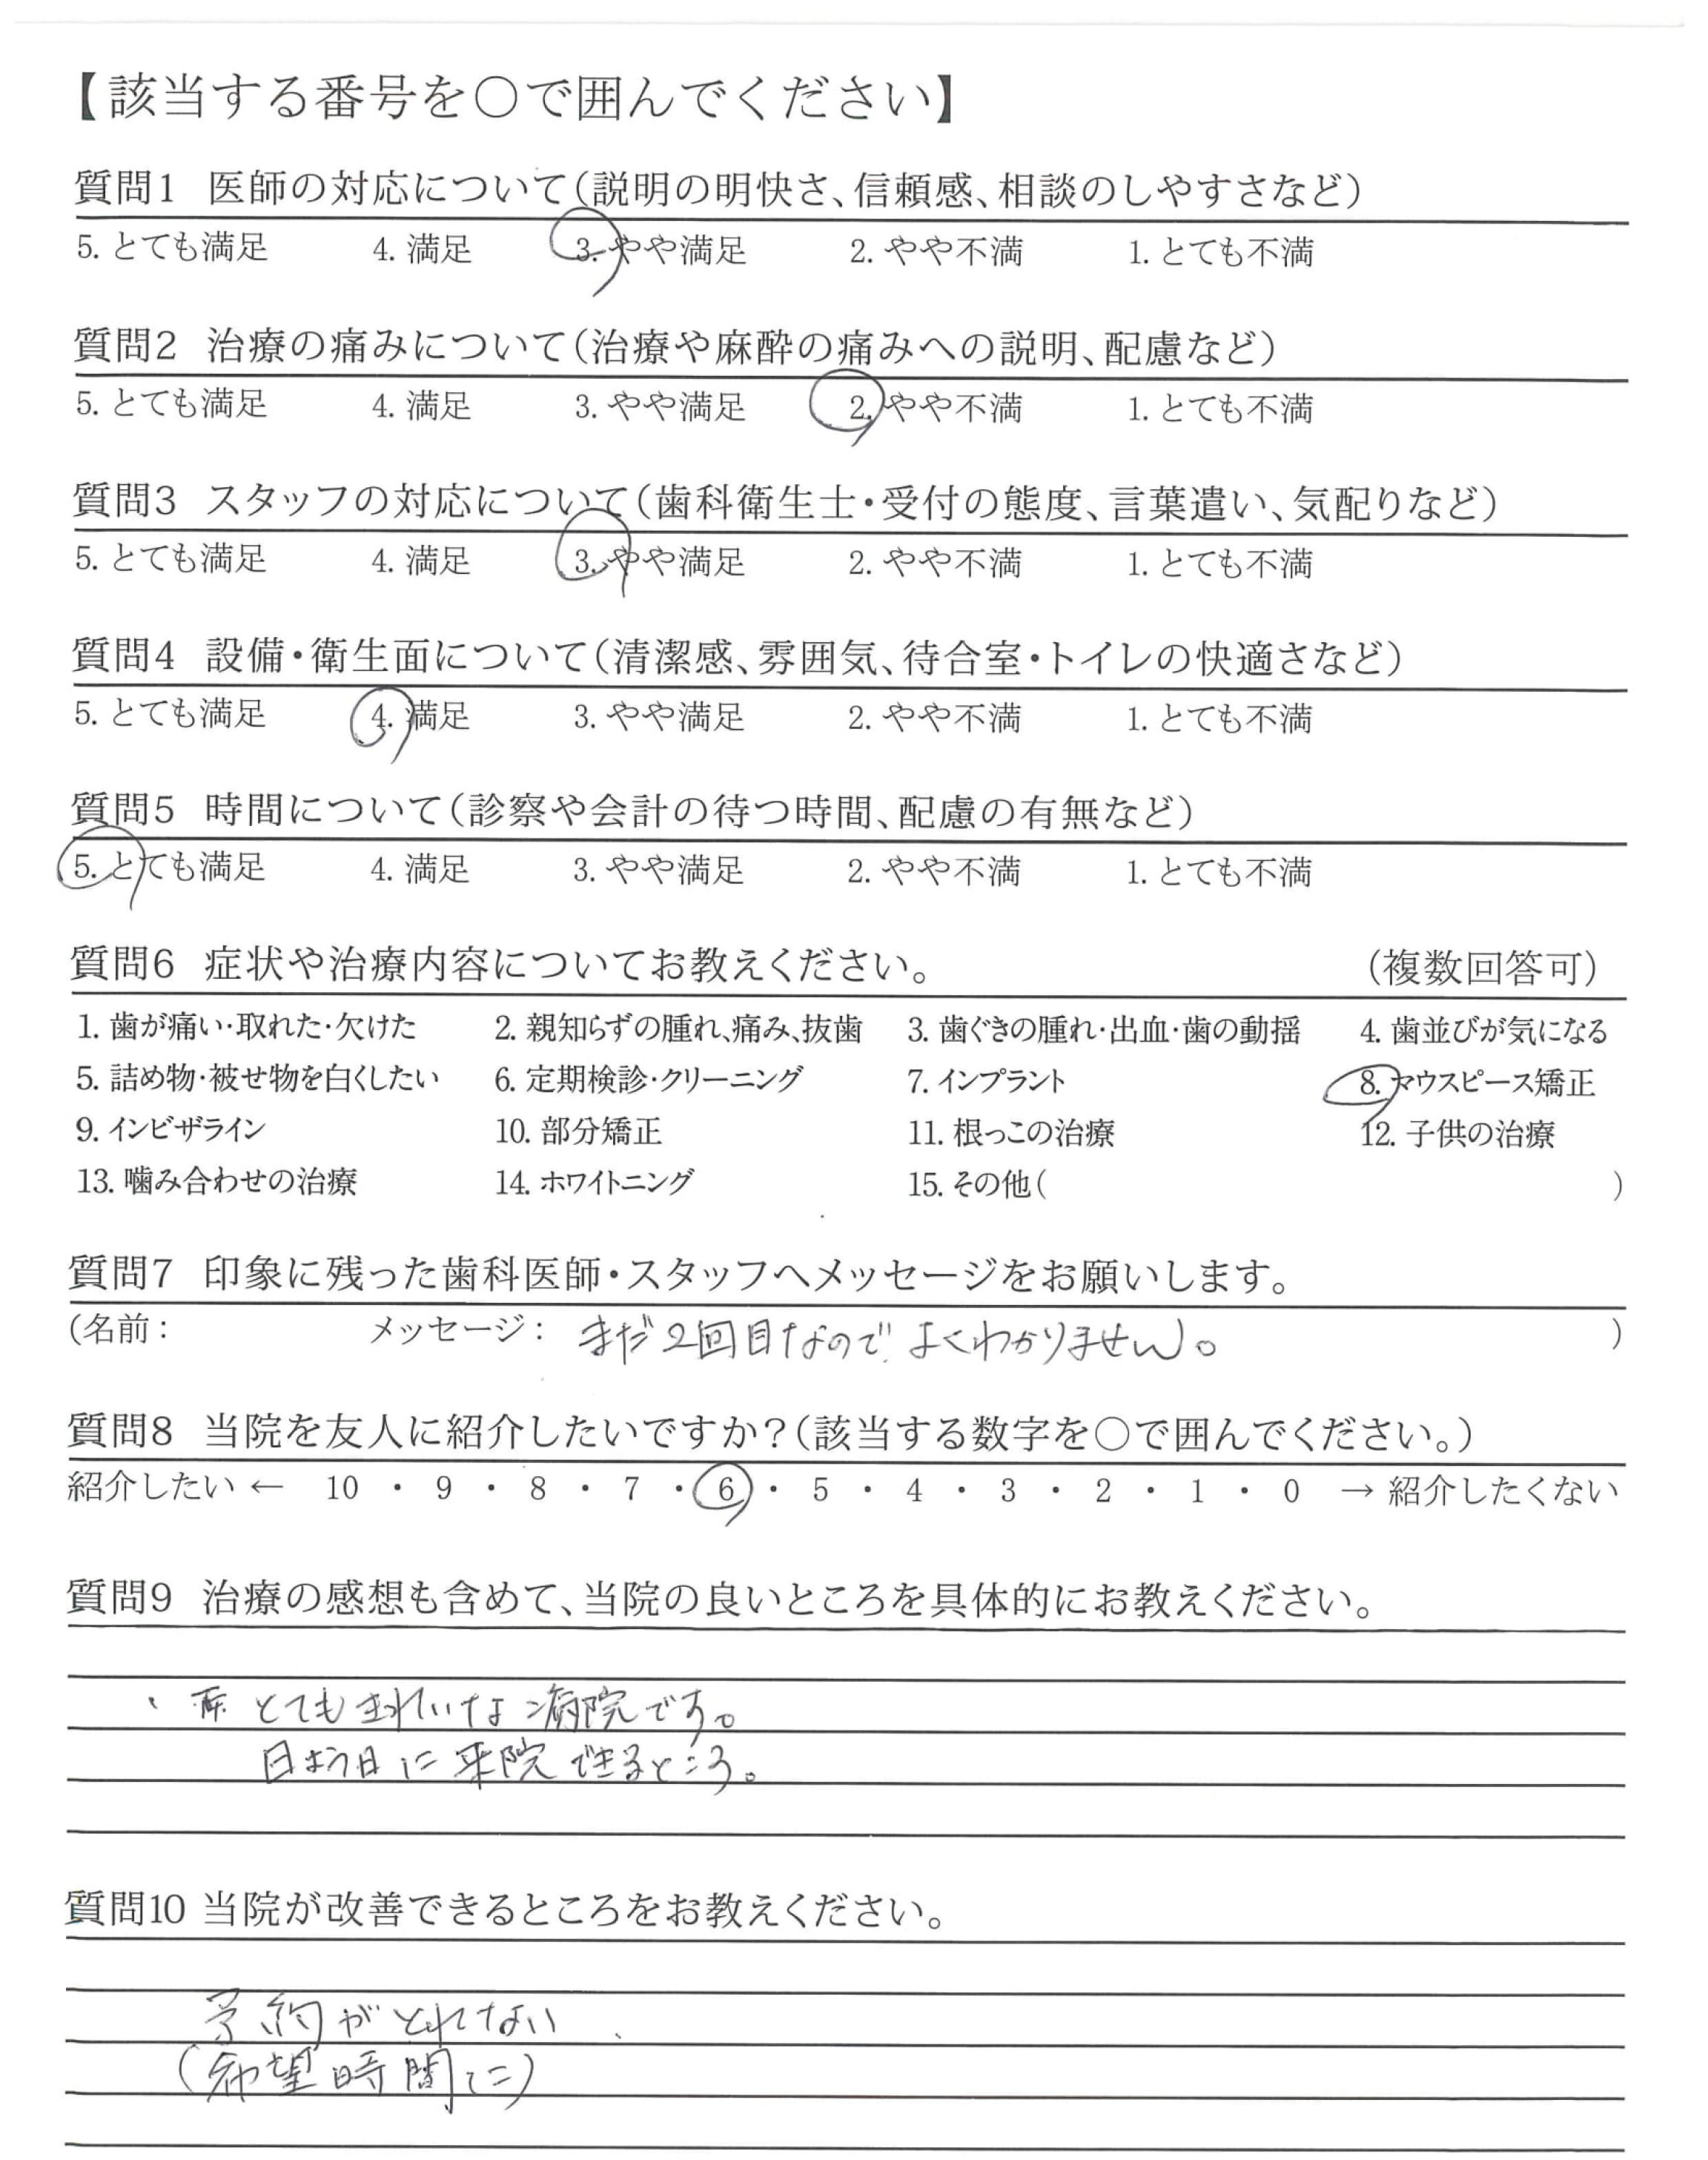 【該当する番号を○で囲んでください】
質問1 医師の対応について(説明の明快さ、信頼感、相談のしやすさなど)
5. とても満足 4. 満足 3. やや満足 2. やや不満 1. とても不満
質問2 治療の痛みについて(治療や麻酔の痛みへの説明、配慮など)
5. とても満足 4. 満足 3. やや満足 2. やや不満 1. とても不満
質問3 スタッフの対応について(歯科衛生士・受付の態度、言葉遣い、気配りなど)
5. とても満足 4. 満足 3. やや満足 2. やや不満 1. とても不満
質問4 設備・衛生面について(清潔感、雰囲気、待合室・トイレの快適さなど)
5. とても満足 4. 満足 3. やや満足 2. やや不満 1. とても不満
質問5 時間について(診察や会計の待つ時間、配慮の有無など)
5. とても満足 4. 満足 3. やや満足 2. やや不満 1. とても不満
質問6 症状や治療内容についてお教えください。 (複数回答可)
1. 歯が痛い・取れた・欠けた 2. 親知らずの腫れ、痛み、抜歯 3. 歯ぐきの腫れ・出血・歯の動揺 4. 歯並びが気になる
5. 詰め物・被せ物を白くしたい 6. 定期検診・クリーニング 7. インプラント 8. マウスピース矯正
9. インビザライン 10. 部分矯正 11. 根っこの治療 12. 子供の治療
13. 噛み合わせの治療 14. ホワイトニング 15. その他( )
質問7 印象に残った歯科医師・スタッフへメッセージをお願いします。
(名前: メッセージ: まだ2回目なのでよくわかりません。 )
質問8 当院を友人に紹介したいですか?(該当する数字を○で囲んでください。)
紹介したい ← 10 ・ 9 ・ 8 ・ 7 ・ 6 ・ 5 ・ 4 ・ 3 ・ 2 ・ 1 ・ 0 → 紹介したくない
質問9 治療の感想も含めて、当院の良いところを具体的にお教えください。
とてもきれいな病院です。
日よう日に来院できるところ。
質問10 当院が改善できるところをお教えください。
予約がとれない
(希望時間に)